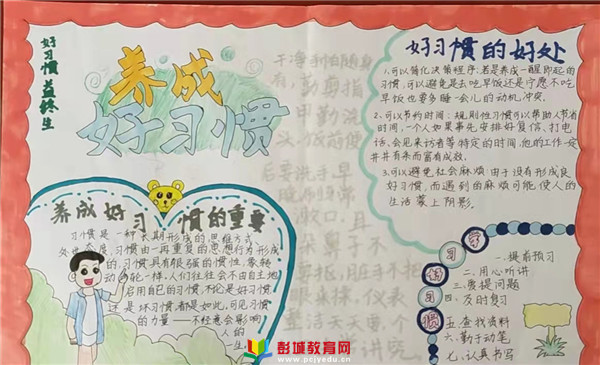 好习惯益终生
养成
好习惯
好习惯的好处
1.可以简化决策程序,若是养成一醒即起的
习惯,可以避免是去吃早饭还是宁愿不吃
早饭也要多睡一会儿的动机冲突。
2.可以节约时间:规则性习惯可以帮助人节省
时间,一个人如果事先安排好复信、打电
话、会见来访者等特定的时间,他的工作一定
井井有条而富有成效。
3.可以避免社会麻烦:由于没有形成良
好习惯,而遇到的麻烦可能使人的
生活蒙上阴影。
养成好习惯的重要
习惯是一种长期形成的思维方式、
处世态度,习惯由一再重复的思想行为形成
的,习惯具有很强的惯性,像转
动的车轮一样。人们往往会不由自主地
启用自己的习惯,不论是好习惯
还是坏习惯都是如此,可见习惯
的力量——不经意会影响
人的
一生。
学习习惯
一、提前预习
二、用心听讲
三、要提问题
四、及时复习
五、查找资料
六、勤于动笔
七、认真书写
干净手帕随身
勤剪指
勤洗
头,饭前便
后要洗手,早
漱口,且
抠,脏手不把
眼来揉,仪表
讲究
彭城教育网
www.pcjyedu.cn